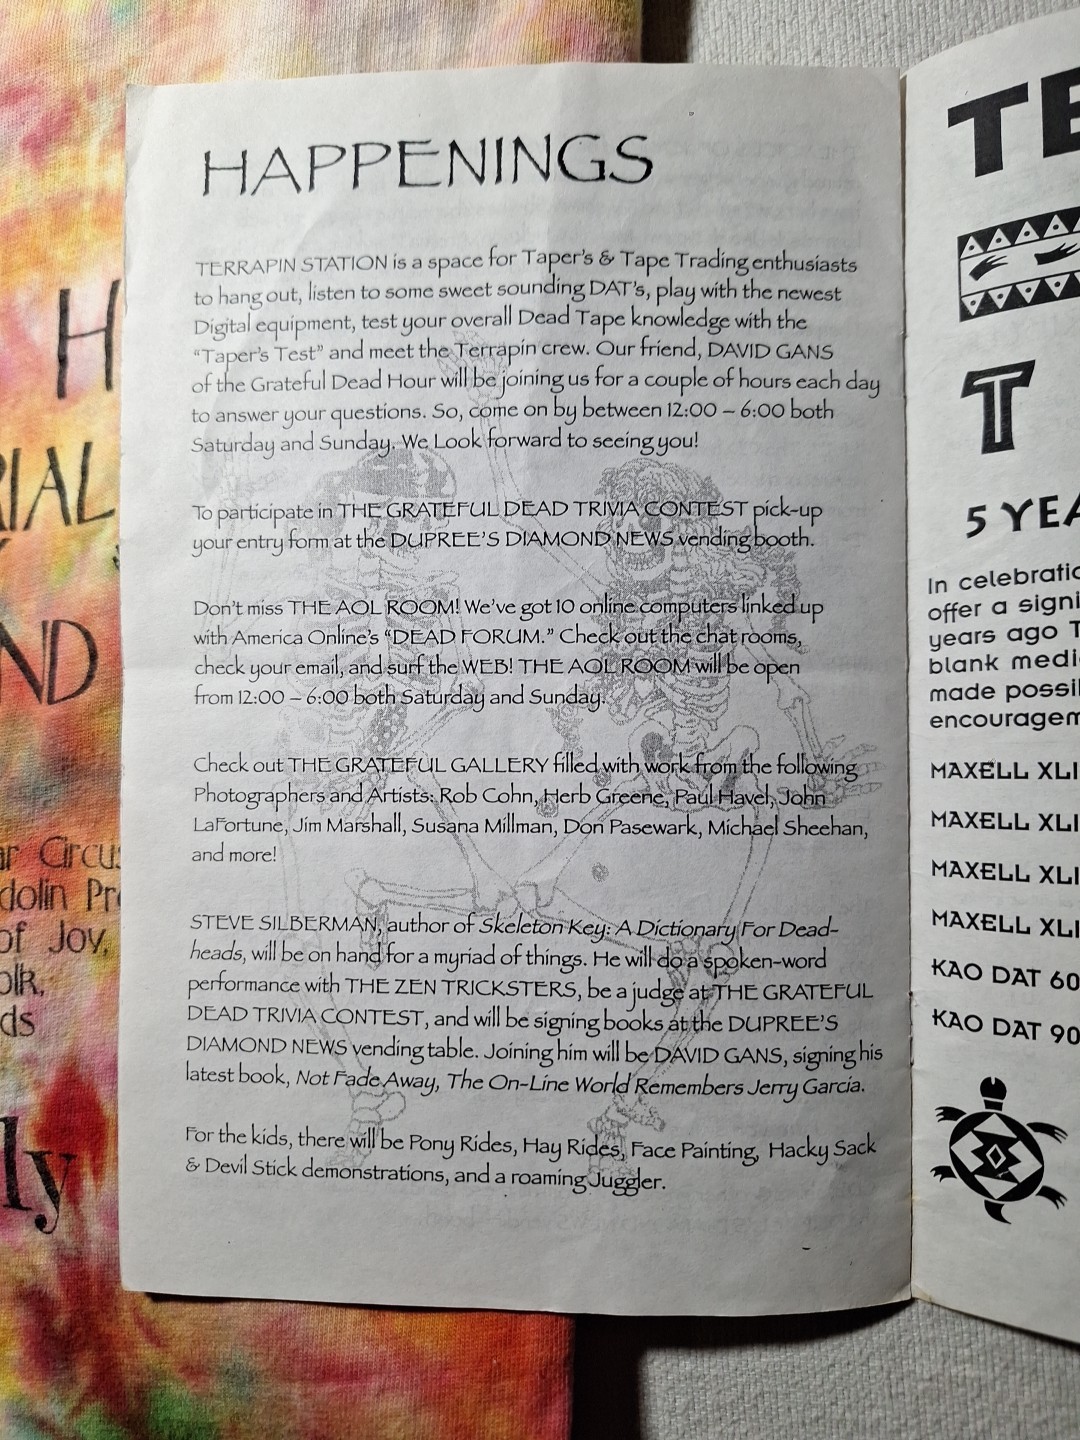 HAPPENINGS
TERRAPIN STATION is a space for Taper's & Tape Trading enthusiasts
to hang out, listen to some sweet sounding DAT's, play with the newest
Digital equipment, test your overall Dead Tape knowledge with the
"Taper's Test" and meet the Terrapin crew. Our friend, DAVID GANS
of the Grateful Dead Hour will be joining us for a couple of hours each day
to answer your questions. So, come on by between 12:00 – 6:00 both
Saturday and Sunday. We Look forward to seeing you!
To participate in THE GRATEFUL DEAD TRIVIA CONTEST pick-up
your entry form at the DUPREE'S DIAMOND NEWS vending booth.
Don't miss THE AOL ROOM! We've got 10 online computers linked up
with America Online's "DEAD FORUM." Check out the chat rooms,
check your email, and surf the WEB! THE AOL ROOM will be open
from 12:00 – 6:00 both Saturday and Sunday.
Check out THE GRATEFUL GALLERY filled with work from the following
Photographers and Artists: Rob Cohn, Herb Greene, Paul Havel, John
LaFortune, Jim Marshall, Susana Millman, Don Pasewark, Michael Sheehan,
and more!
STEVE SILBERMAN, author of Skeleton Key: A Dictionary For Dead-
heads, will be on hand for a myriad of things. He will do a spoken-word
performance with THE ZEN TRICKSTERS, be a judge at THE GRATEFUL
DEAD TRIVIA CONTEST, and will be signing books at the DUPREE'S
DIAMOND NEWS vending table. Joining him will be DAVID GANS, signing his
latest book, Not Fade Away, The On-Line World Remembers Jerry Garcia.
For the kids, there will be Pony Rides, Hay Rides, Face Painting, Hacky Sack
& Devil Stick demonstrations, and a roaming Juggler.
TE
T
5 YEA
In celebratio
offer a signi
years ago T
blank medi
made possi
encouragem
MAXELL XLI
MAXELL XLI
MAXELL XLI
MAXELL XLI
KAO DAT 60
KAO DAT 90
H
RIAL
ND
ar Circus
dolin Pr
of Joy,
olk,
ds
ly